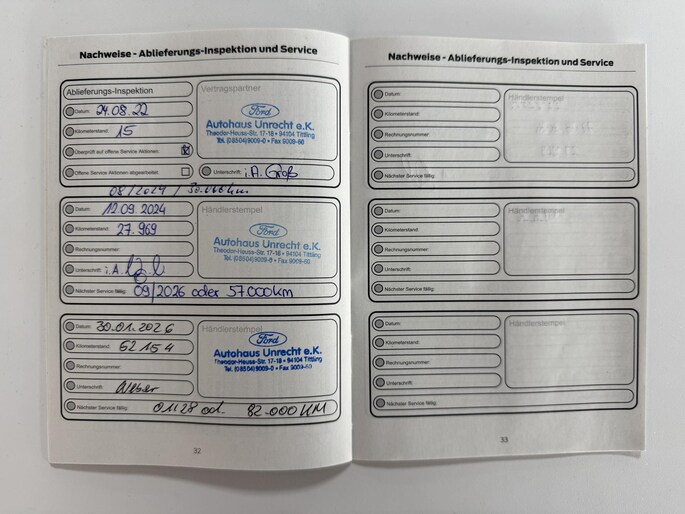 Nachweise - Ablieferungs-Inspektion und Service
Ablieferungs-Inspektion
Vertragspartner
Datum: 24.08.22
Kilometerstand: 15
Überprüft auf offene Service Aktionen:
Offene Service Aktionen abgearbeitet:
Ford
Autohaus Unrecht e.K.
Theodor-Heuss-Str. 17-18 • 94104 Tittling
Tel. (08504) 9009-0 • Fax 9009-60
Unterschrift: i.A. Groß
08/2024 / 30.000km
Datum: 12.09.2024
Kilometerstand: 27.969
Rechnungsnummer:
Unterschrift: i.A.
Nächster Service fällig: 09/2026 oder 57.000km
Händlerstempel
Ford
Autohaus Unrecht e.K.
Theodor-Heuss-Str. 17-18 • 94104 Tittling
Tel. (08504) 9009-0 • Fax 9009-60
Datum: 30.01.2026
Kilometerstand: 62154
Rechnungsnummer:
Unterschrift: Weber
Nächster Service fällig: 01/28 od. 82.000 KM
Händlerstempel
Ford
Autohaus Unrecht e.K.
Theodor-Heuss-Str. 17-18 • 94104 Tittling
Tel. (08504) 9009-0 • Fax 9009-60
32
Nachweise - Ablieferungs-Inspektion und Service
Datum:
Kilometerstand:
Rechnungsnummer:
Unterschrift:
Nächster Service fällig:
Händlerstempel
Datum:
Kilometerstand:
Rechnungsnummer:
Unterschrift:
Nächster Service fällig:
Händlerstempel
Datum:
Kilometerstand:
Rechnungsnummer:
Unterschrift:
Nächster Service fällig:
Händlerstempel
33